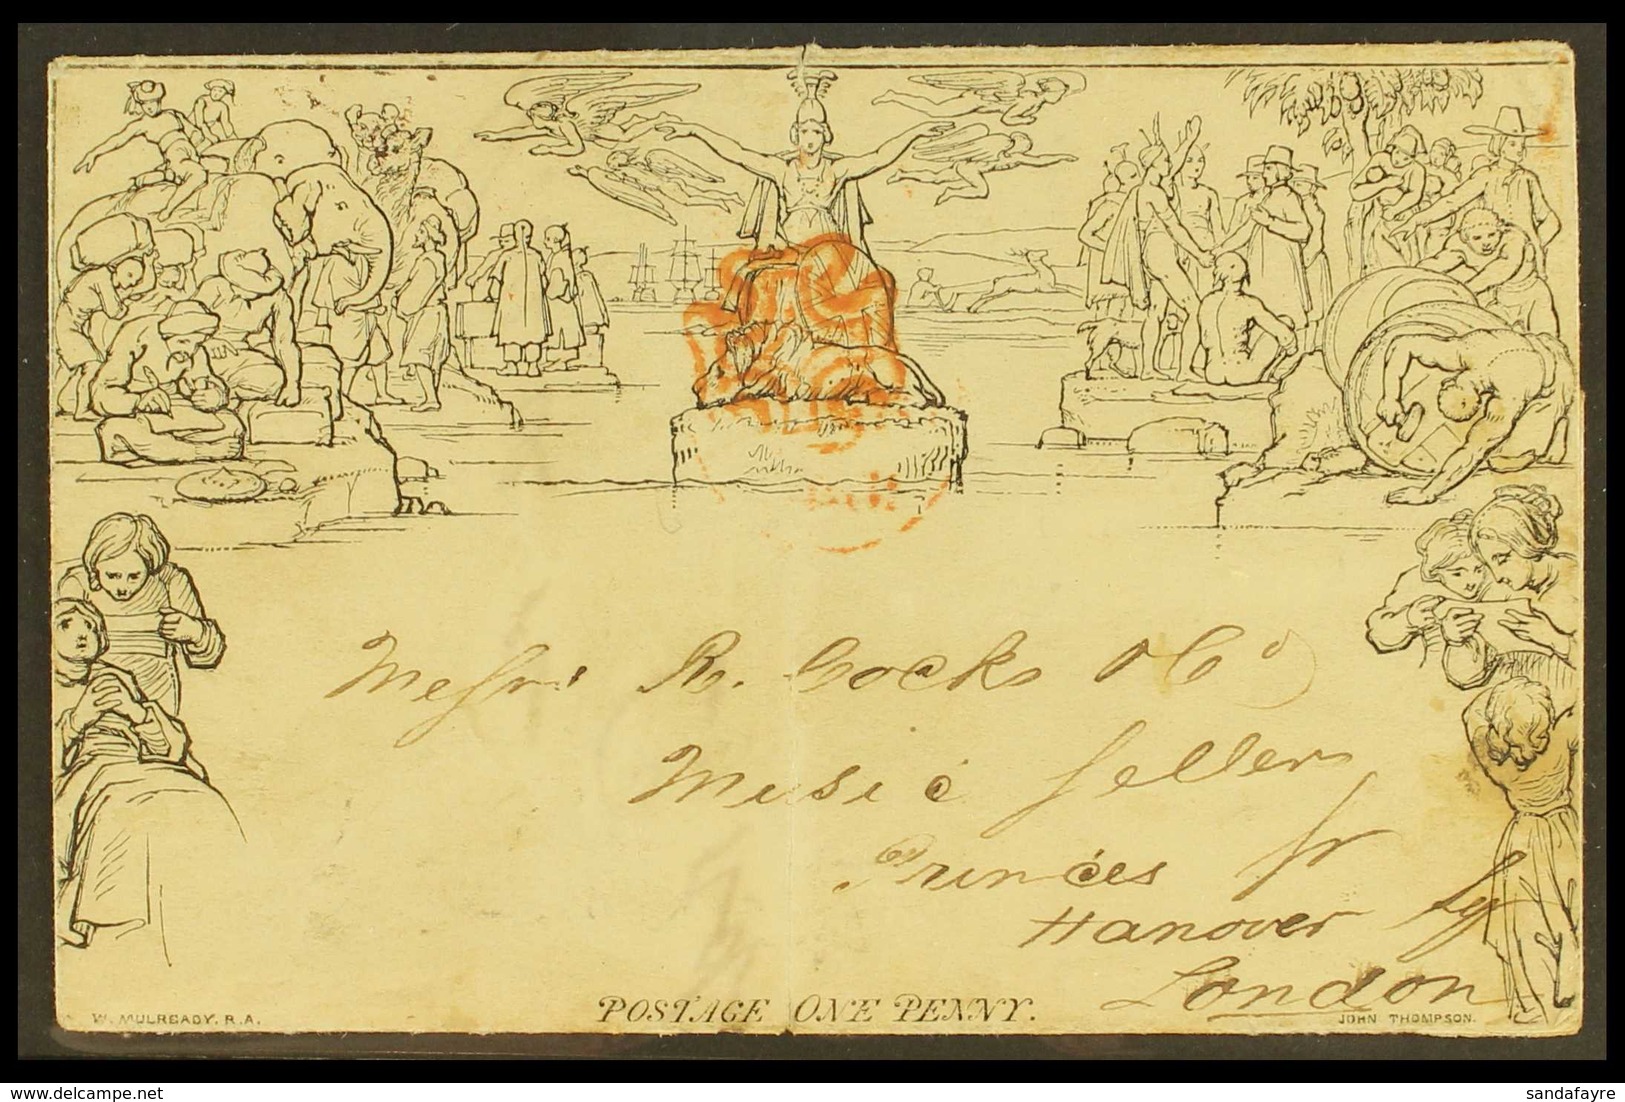 Messrs R. Cocks & Co
Music Sellers
Princes St
Hanover Sq
London
POSTAGE ONE PENNY.
W. MULREADY. R.A.
JOHN THOMPSON.
delcampe.net
sandafayre